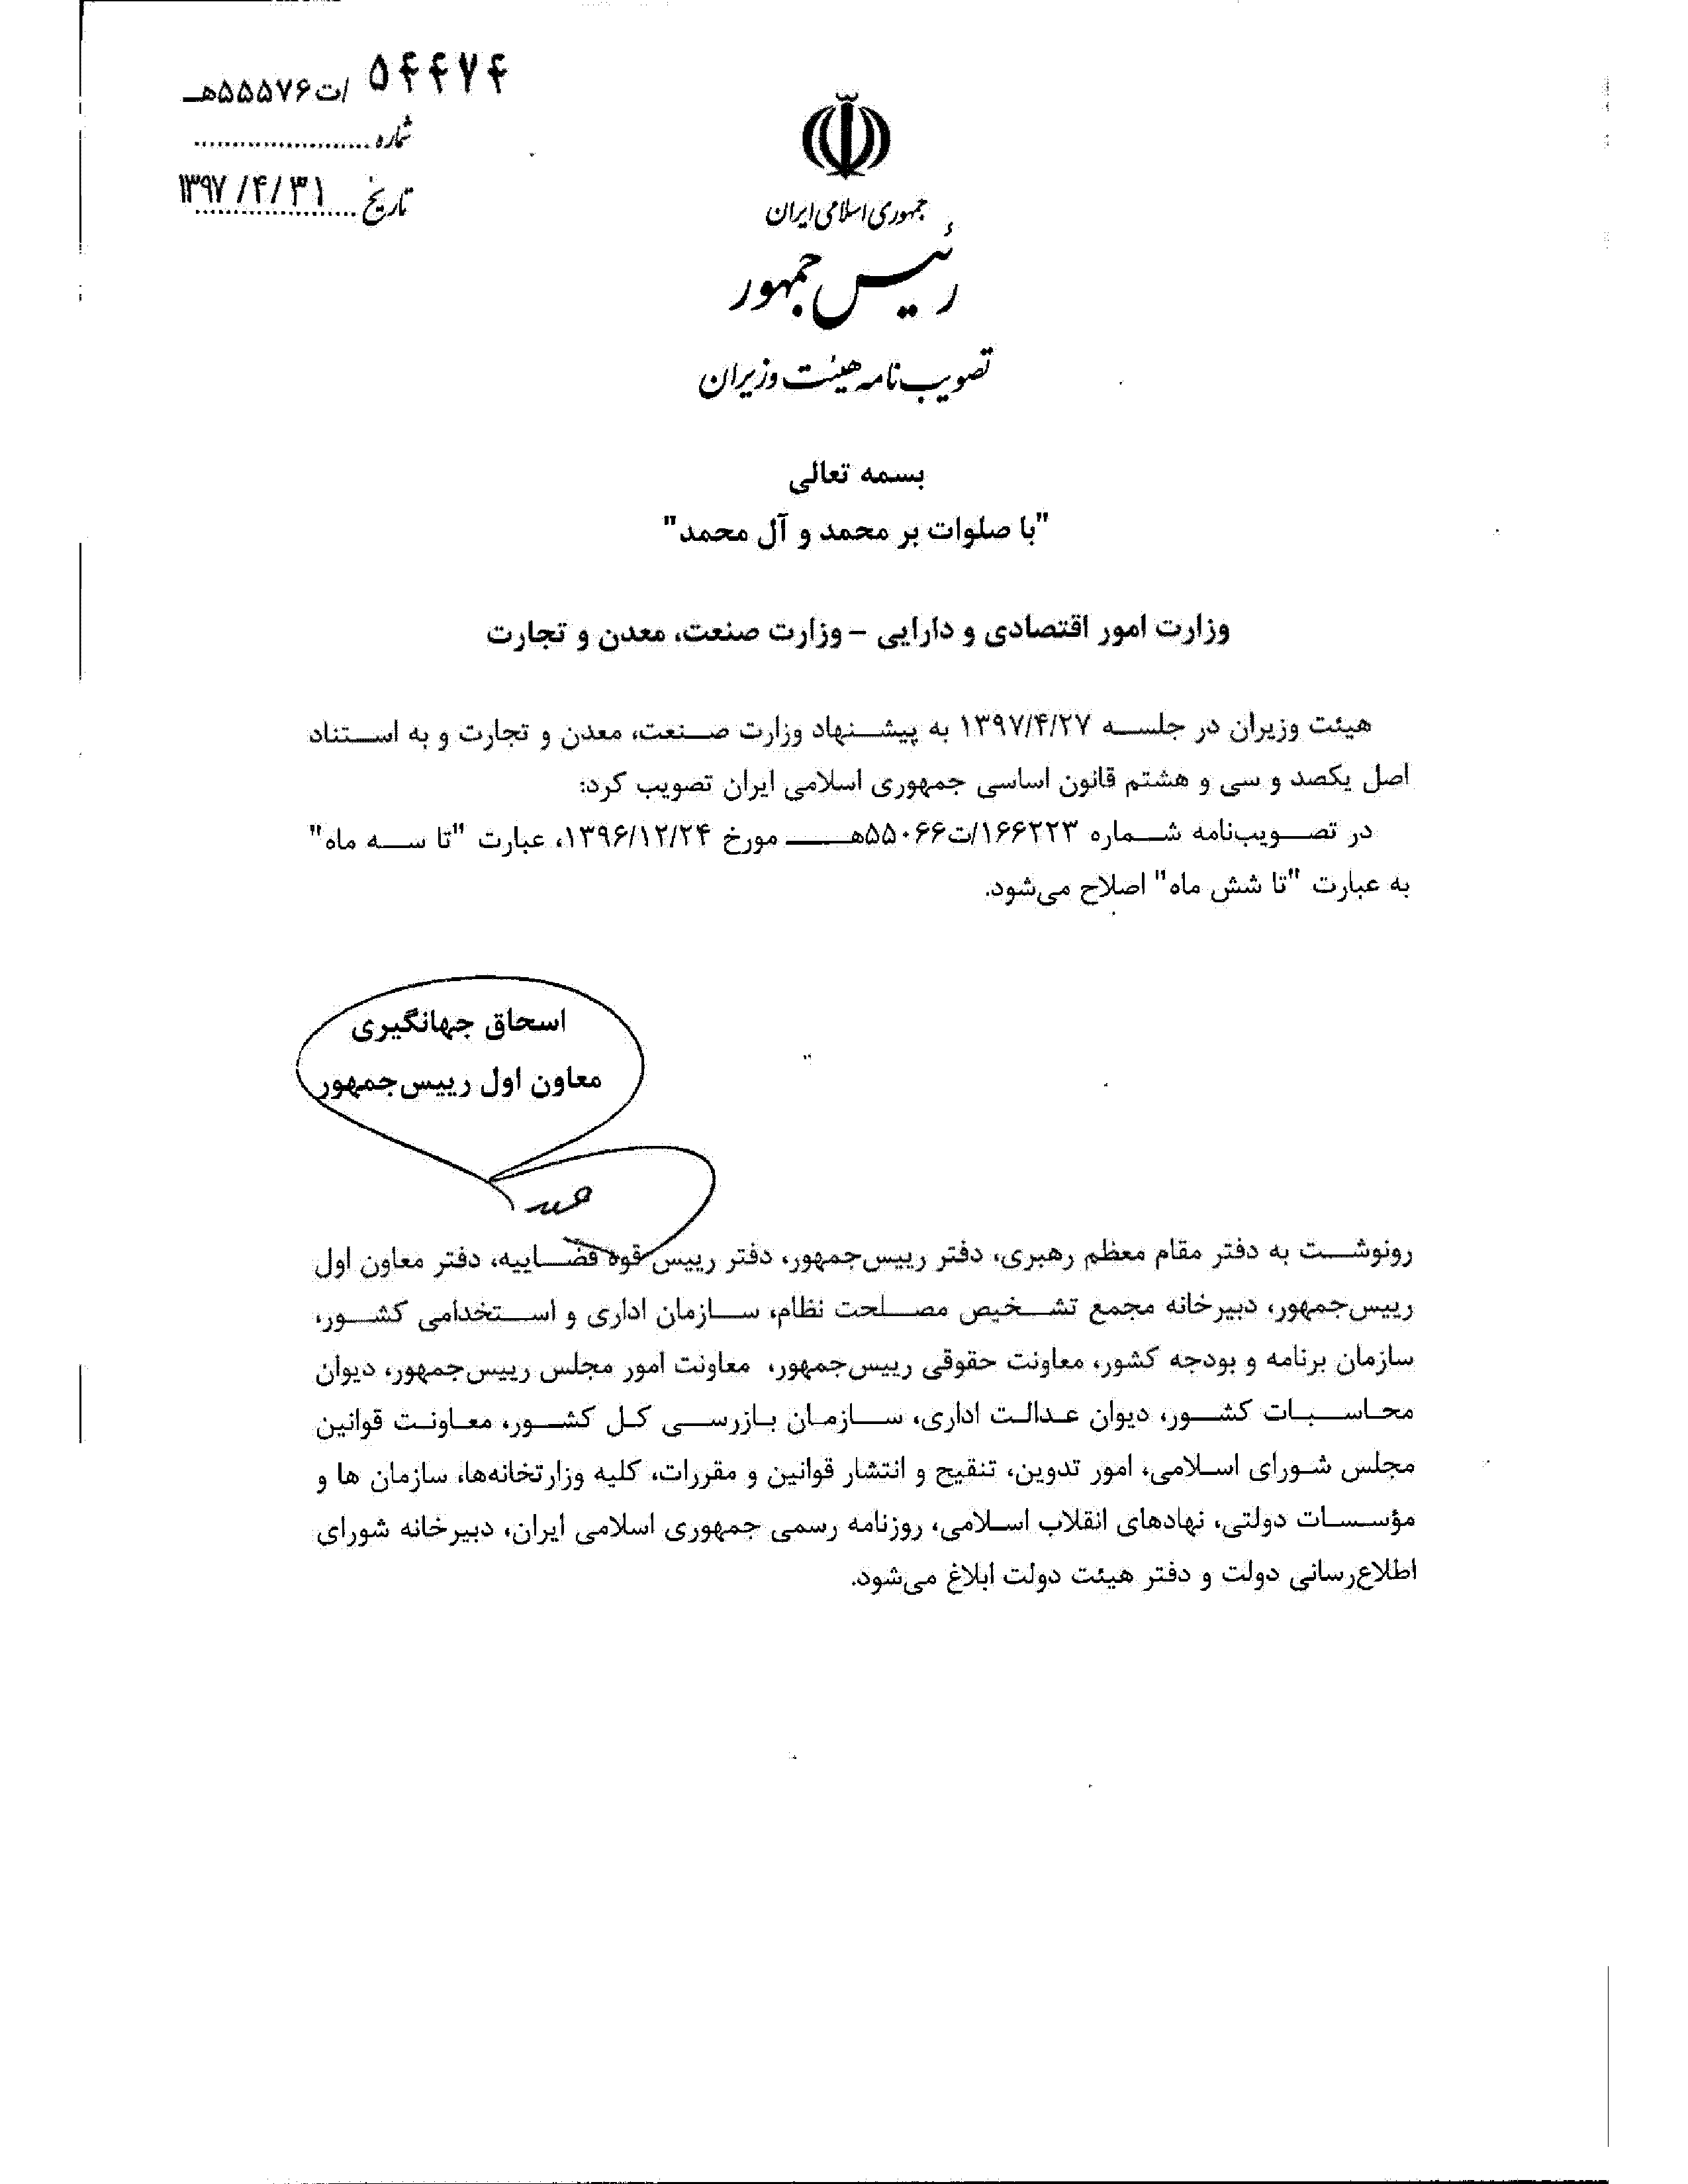 ۵۴۴۷۴ /ت۵۵۵۷۶هـ
شماره
تاریخ ۱۳۹۷/۴/۳۱
جمهوری اسلامی ایران
رئیس جمهور
تصویب نامه هیئت وزیران
بسمه تعالی
"با صلوات بر محمد و آل محمد"
وزارت امور اقتصادی و دارایی – وزارت صنعت، معدن و تجارت
هیئت وزیران در جلسه ۱۳۹۷/۴/۲۷ به پیشنهاد وزارت صنعت، معدن و تجارت و به استناد
اصل یکصد و سی و هشتم قانون اساسی جمهوری اسلامی ایران تصویب کرد:
در تصویب‌نامه شماره ۱۶۶۲۲۳/ت۵۵۰۶۶هـ مورخ ۱۳۹۶/۱۲/۲۴، عبارت "تا سه ماه"
به عبارت "تا شش ماه" اصلاح می‌شود.
اسحاق جهانگیری
معاون اول رییس‌جمهور
رونوشت به دفتر مقام معظم رهبری، دفتر رییس‌جمهور، دفتر رییس قوه قضاییه، دفتر معاون اول
رییس‌جمهور، دبیرخانه مجمع تشخیص مصلحت نظام، سازمان اداری و استخدامی کشور،
سازمان برنامه و بودجه کشور، معاونت حقوقی رییس‌جمهور، معاونت امور مجلس رییس‌جمهور، دیوان
محاسبات کشور، دیوان عدالت اداری، سازمان بازرسی کل کشور، معاونت قوانین
مجلس شورای اسلامی، امور تدوین، تنقیح و انتشار قوانین و مقررات، کلیه وزارتخانه‌ها، سازمان ها و
مؤسسات دولتی، نهادهای انقلاب اسلامی، روزنامه رسمی جمهوری اسلامی ایران، دبیرخانه شورای
اطلاع‌رسانی دولت و دفتر هیئت دولت ابلاغ می‌شود.